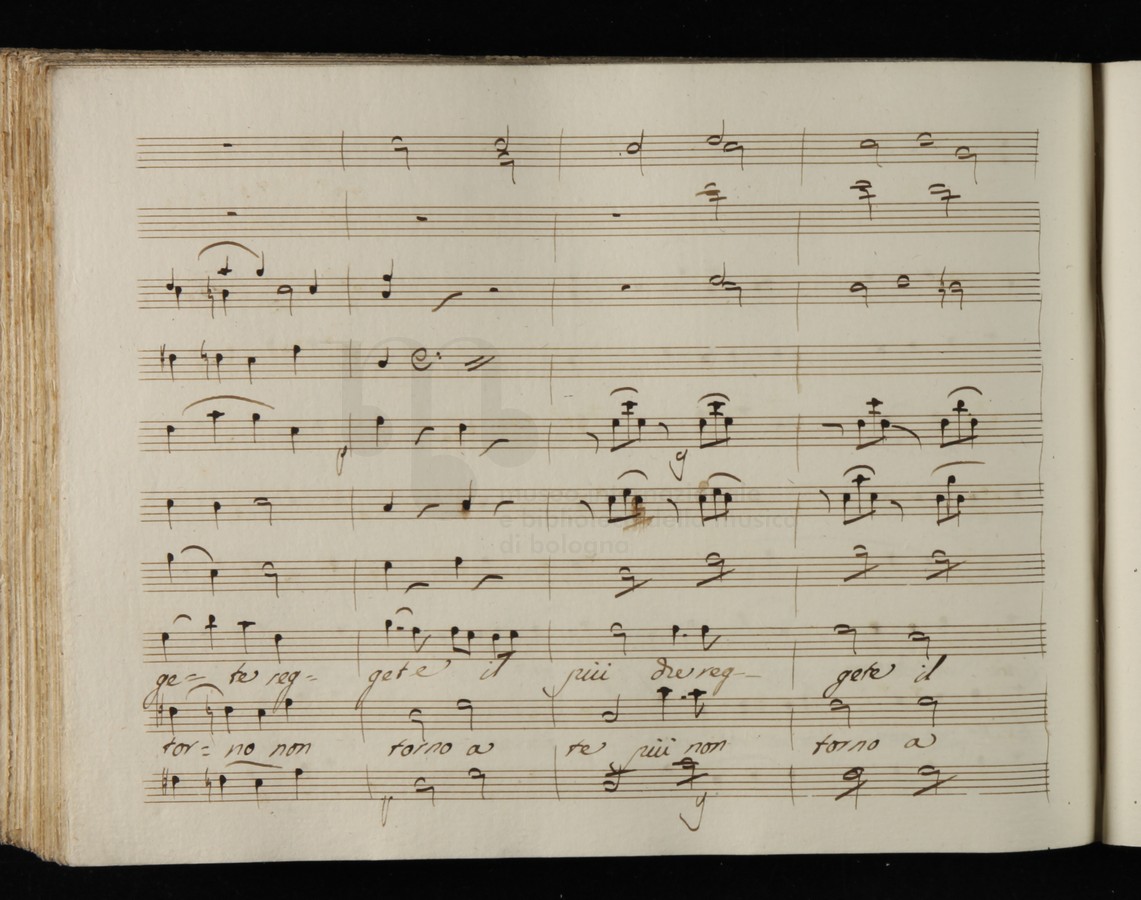 museo internazionale
e biblioteca della musica
di bologna
ge= te reg= gete il piè reg— gete il
tor= no non torno a te più non torno a